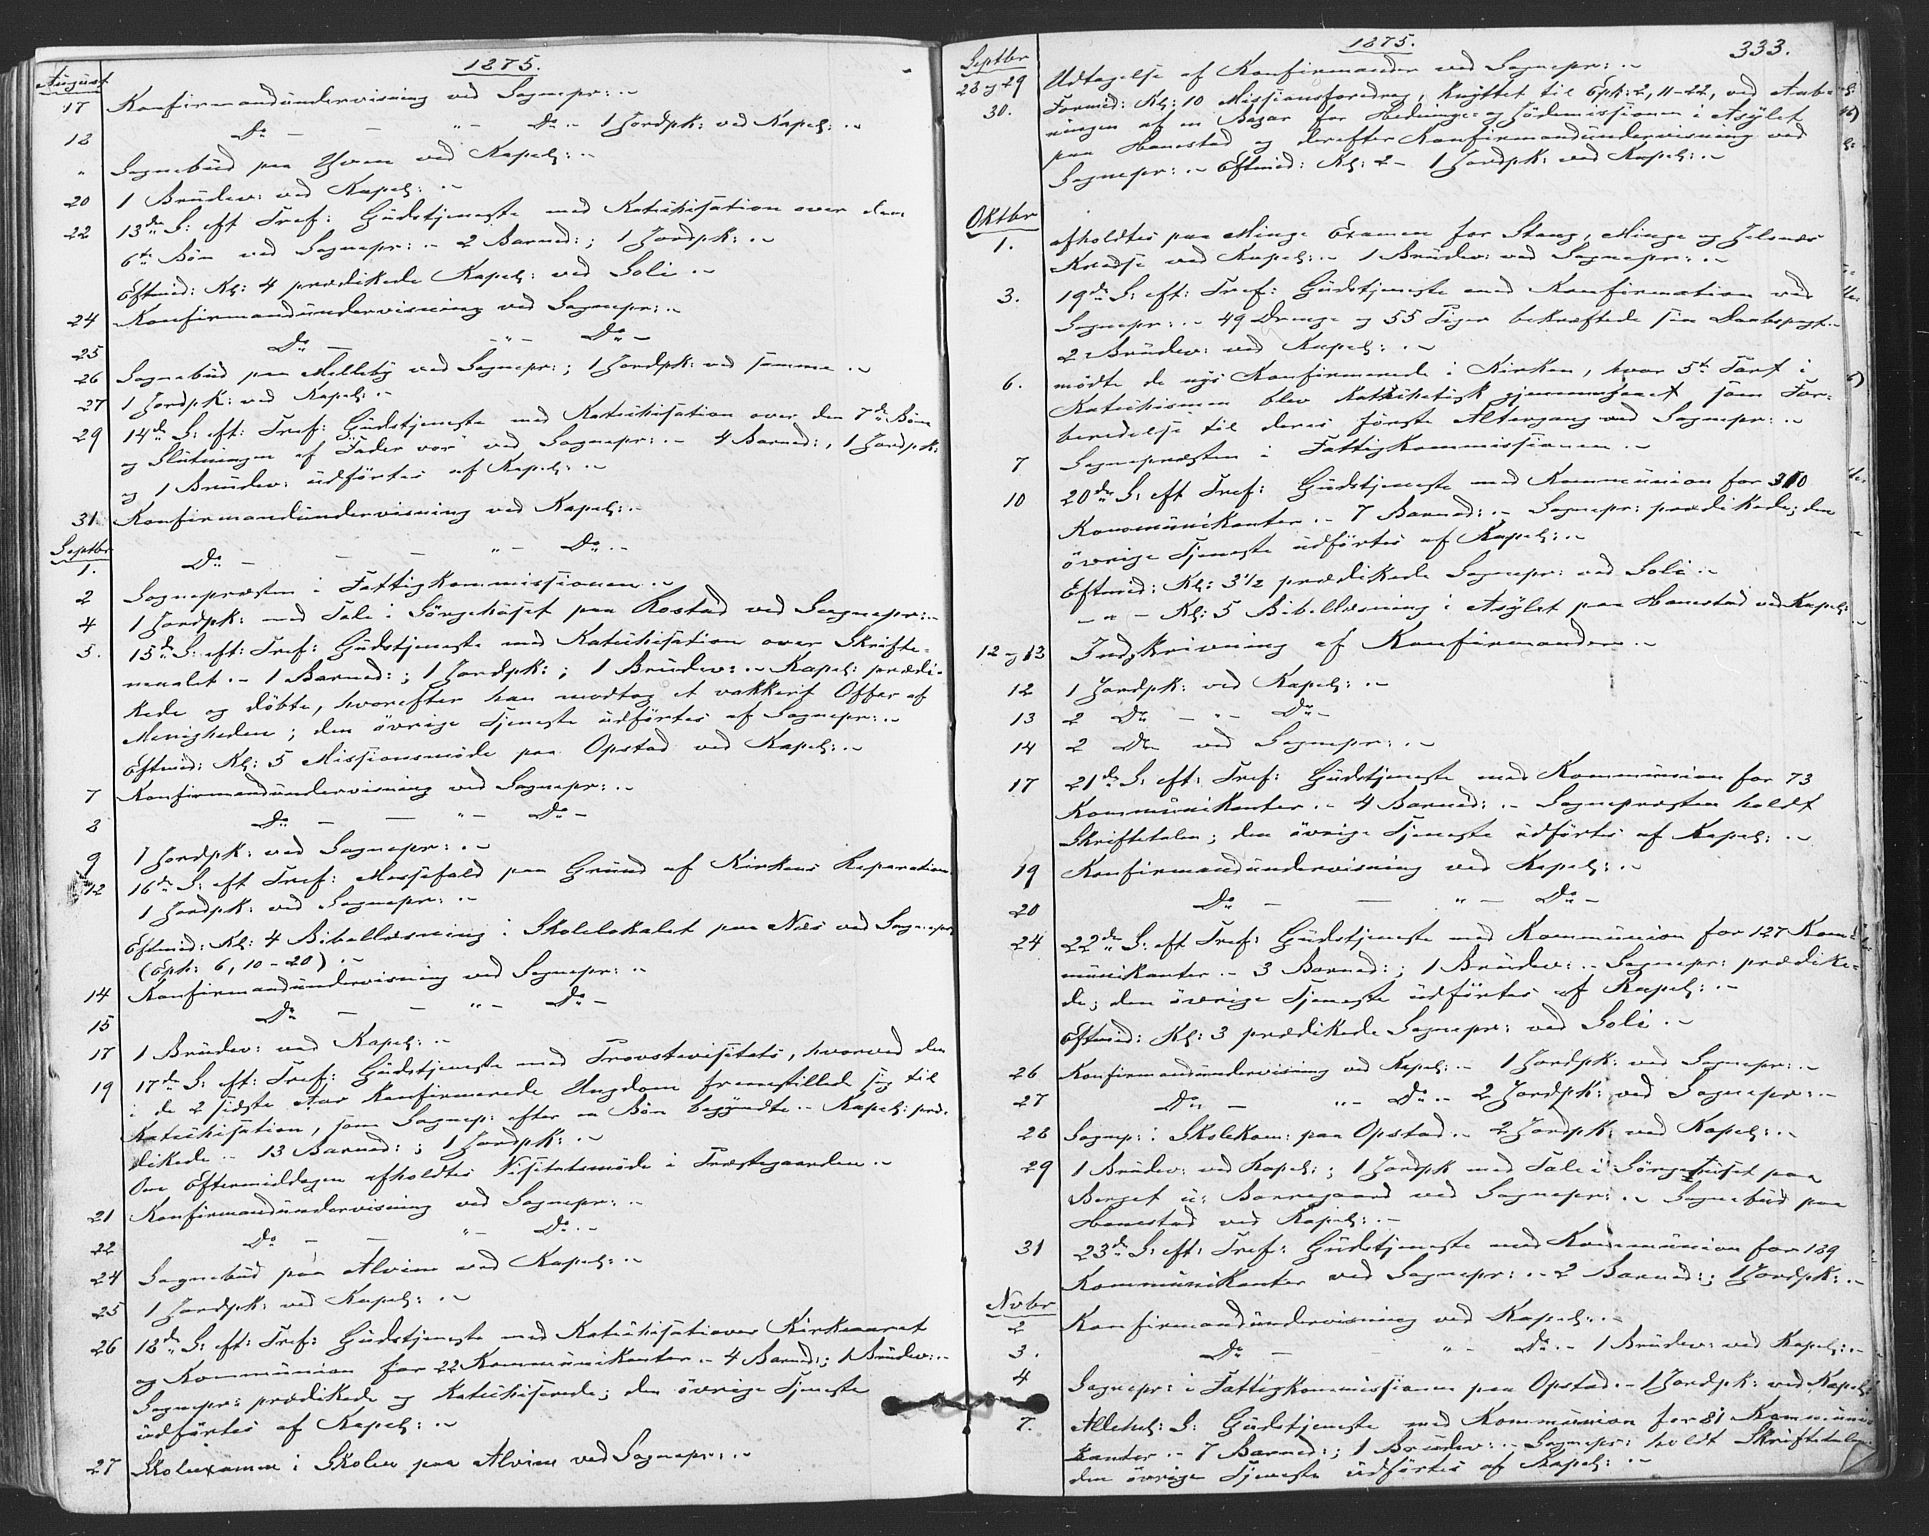 1875.
August
17 Konfirmandündervisning ved Sognepr: .-
18 Do — — " - Do .- 1 Jordpk: ved Kapel: .-
" Sognebüd paa Hven ved Kapel: .-
20 1 Brüdev: ved Kapel: .-
22 13de S: eft Tref: Güdstjeneste med Katechisation over den
6te Bön ved Sognepr: .- 2 Barned: ; 1 Jordpk: .-
Eftmid: Kl: 4 prædikede Kapel: ved Soli .-
24 Konfirmandündervisning ved Sognepr: .-
25 Do — - " - Do -
26 Sognebüd paa Melleby ved Sognepr: ; 1 Jordpk: ved samme .-
27 1 Jordpk: ved Kapel: .-
29 14de S: eft: Tref: Güdstjeneste med Katechisation over den 7de Bön
og Slutningen af Fader vor ved Sognepr: .- 4 Barned: , 1 Jordpk:
og 1 Brüdev: üdførtes af Kapel: .-
31. Konfirmandündervisning ved Kapel: .-
Septbr
1. Do — — — " - Do .-
2 Sognepræsten i Fattigkommissionen .-
4 1 Jordpk: med Tale i Sörgehüset paa Rostad ved Sognepr: .-
5. 15de S: eft: Tref: Güdstjeneste med Katechisation over Skrifte-
maalet .- 1 Barned: ; 1 Jordpk: ; 1 Brüdev: .- Kapel: prædi-
kede og döbte, hvorefter han modtog et vakkert Offer af
Menigheden ; den övrige Tjeneste üdförtes af Sognepr: .-
Eftmid: Kl: 5 Missionsmöde paa Opstad ved Kapel: .-
7 Konfirmandündervisning ved Sognepr: .-
8 Do — — " - Do -
9 1 Jordpk: ved Sognepr: .-
12 16de S: eft Tref: Messefald paa Grund af Kirkens Reparation
1 Jordpk: ved Sognepr: .-
Eftmid: Kl: 4 Bibellæsning i Skolelokalet paa Næs ved Sognepr:
(Eph: 6, 10-20) .-
14 Konfirmandündervisning ved Sognepr: .-
15 Do — — " - Do -
17 1 Brüdev: ved Kapel: .-
19 17de S: eft: Tref: Güdstjeneste med Provstevisitats, hvorved den
i de 2 sidste Aar konfirmerede Ungdom fremstilled sig til
Katechisation, som Sognep: efter en Bön begyndte .- Kapel: præ-
dikede .- 13 Barned: ; 1 Jordpk: .-
Om Eftermiddagen afholdtes Visitatsmöde i Præstegaarden .-
21 Konfirmandündervisning ved Sognepr: .-
22 Do — — " - Do .-
24 Sognebüd paa Alvim ved Kapel: .-
25 1 Jordpk: ved Kapel: .-
26 18de S: eft: Tref: Güdstjeneste med Katechisation over Kirkeaaret
og Kommünion for 22 Kommünikanter .- 4 Barned: ; 1 Brüdev: .-
Sognepr: prædikede og katechiserede ; den övrige Tjeneste
üdförtes af Kapel: .-
27 Skolexamen i Skolen paa Alvim ved Sognepr: .-
1875.
333.
Septbr
28 og 29 Udtagelse af Konfirmander ved Sognepr: .-
30. Formid: Kl: 10 Missionsforedrag, knyttet til Eph: 2, 11-22, ved Aab-
ningen af en Bazar for Hedninge- og Jödemissionen i Asylet
paa Hanestad og derefter Konfirmandündervisning ved
Sognepr: .- Eftmid: Kl: 2 - 1 Jordpk: ved Kapel: .-
Oktbr
1. afholdtes paa Minge Examen for Stang, Minge og Jelsnæs
Kredse ved Kapel: .- 1 Brüdev: ved Sognepr: .-
3. 19de S: eft: Tref: Güdstjeneste med Konfirmation ved
Sognepr: .- 49 Drenge og 55 Piger bekræftede sin Daabspagt .-
2 Brüdev: ved Kapel: .-
6. mödte de nys Konfirmerede i Kirken, hvor 5te Part i
Katechismen blev katechetisk gjennemgaaet som For-
beredelse til deres förste Altergang ved Sognepr: .-
7 Sognepræsten i Fattigkommissionen .-
10 20de S: eft Tref: Güdstjeneste med Kommünion for 310
Kommünikanter .- 7 Barned: .- Sognepr: prædikede ; den
övrige Tjeneste üdförtes af Kapel: .-
Eftmid: Kl: 3 1/2 prædikede Sognepr: ved Soli .-
- " - Kl: 5 Bibellæsning i Asylet paa Hanestad ved Kapel:
12 og 13 Indskrivning af Konfirmander .-
12 1 Jordpk: ved Kapel: .-
13 2 Do — " - Do -
14 2 Do ved Sognepr: .-
17 21de S: eft: Tref: Güdstjeneste med Kommünion for 73
Kommünikanter .- 4 Barned: .- Sognepræsten holdt
Skriftetalen ; den övrige Tjeneste üdförtes af Kapel: .-
19 Konfirmandündervisning ved Kapel: .-
20 Do — — " - Do -
24 22de S: eft Tref: Güdstjeneste med Kommünion for 127 Kom-
münikanter .- 3 Barned: ; 1 Brüdev: .- Sognepr: prædike-
de ; den övrige Tjeneste üdförtes af Kapel: .-
Eftmid: Kl: 3 prædikede Sognepr: ved Soli .-
26 Konfirmandündervisning ved Kapel: .- 1 Jordpk: ved Sognepr: .-
27 Do — " - Do .- 2 Jordpk: ved Sognepr: .-
28 Sognep: i Skolekom: paa Opstad .- 2 Jordpk: ved Kapel: .-
29 1 Brüdev: ved Kapel: ; 1 Jordpk med Tale i Sörgehüset paa
Berget ü: Borregaard ved Sognepr: .- Sognebüd paa
Hanestad ved Kapel: .-
31 23de S: eft: Tref: Güdstjeneste med Kommünion for 189
Kommünikanter ved Sognepr: .- 2 Barned: ; 1 Jordpk: .-
Novbr
2 Konfirmandündervisning ved Kapel: .-
3. Do — — " - Do .- 1 Brüdev: ved Kapel: .-
4 Sognepr: i Fattigkommissionen paa Opstad .- 1 Jordpk: ved Kapel:
7. Allehel: S: Güdstjeneste med Kommünion for 81 Kommüni-
kanter .- 7 Barned: ; 1 Brüdev: .- Sognepr: holdt Skriftetalen
den övrige Tjeneste üdförtes af Kapel: .-